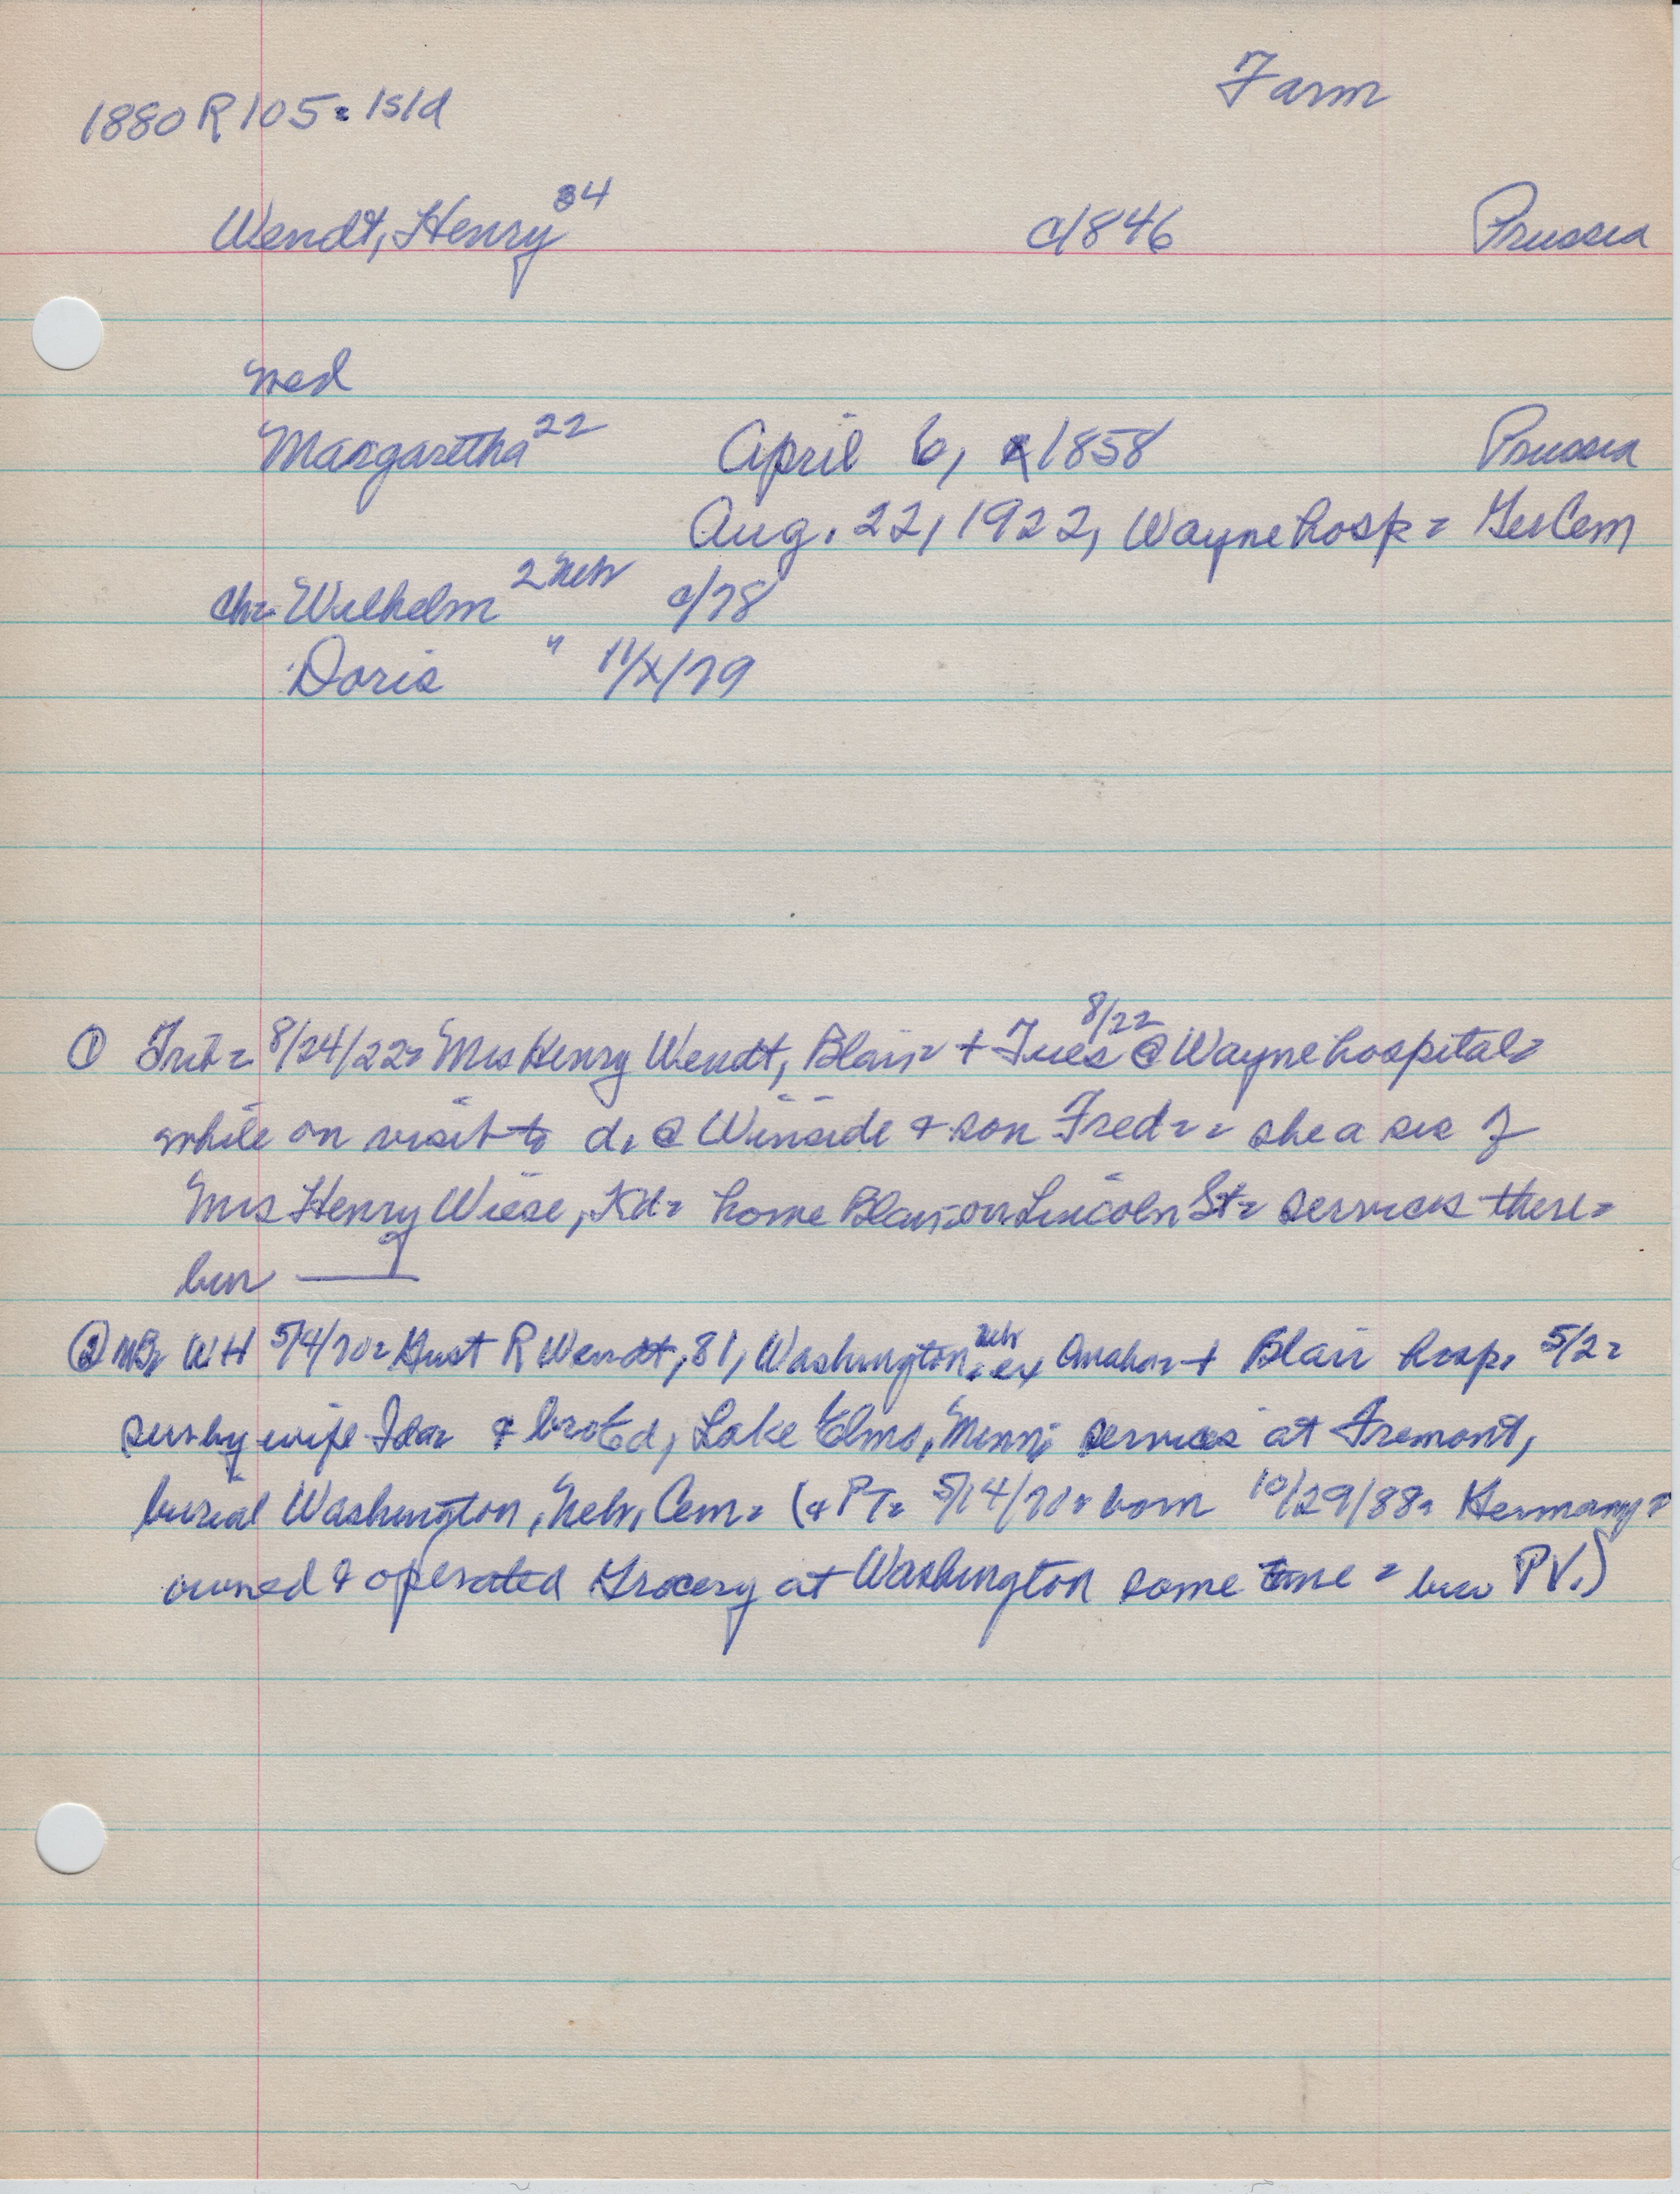 1880 R 105 = Isld
Farm
Wendt, Henry 34 c/1846 Prussia
med
Margaretha 22 April 6, 1858 Prussia
Aug. 22, 1922, Wayne hosp = Ger Cem
Ch = Wilhelm 2 Neb c/78
Doris " 11/x/79
8/22
① Trib = 8/24/22 = Mrs Henry Wendt, Blair = + Tues @ Wayne hospital =
while on visit to d. @ Winside & son Fred = = she a sis of
Mrs Henry Wiese, Kd = home Blair on Lincoln St = services there =
bur
② WH 5/4/70 = Gust R Wendt, 81, Washington Neb = ex Omaha = + Blair hosp. 5/2 =
surv by wife Ida = & bro Ed, Lake Elmo, Minn; services at Fremont,
burial Washington, Neb. Cem = (& PT = 5/14/70 = born 10/29/88 = Germany =
owned & operated Grocery at Washington some time = bur PV.)